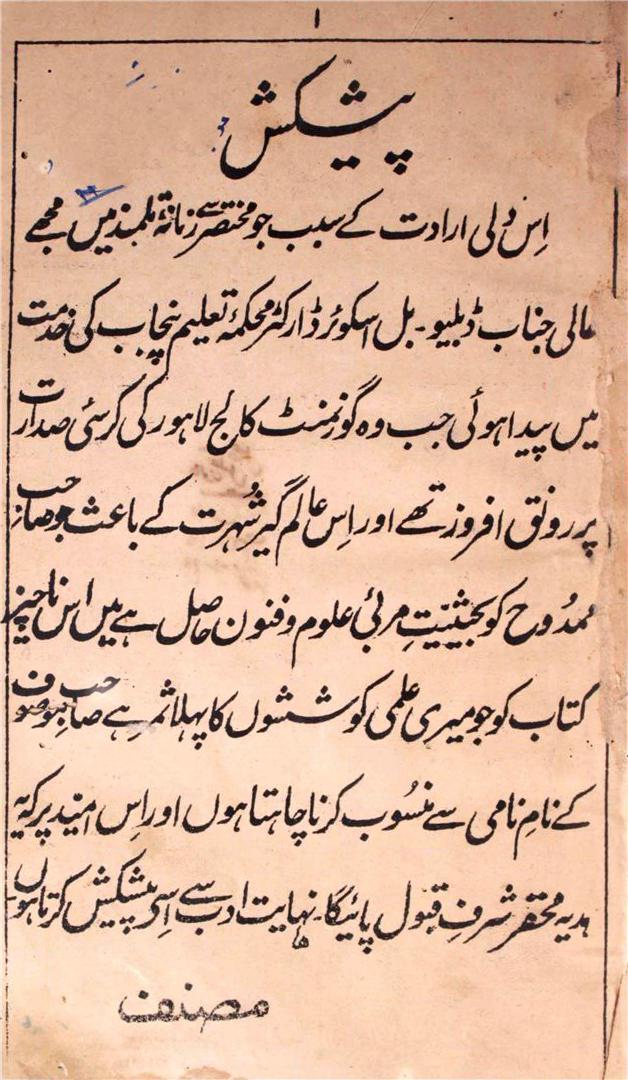 ۱
پیشکش
اِس دلی ارادت کے سبب جو مختصر سے زمانۂ تلمذ میں مجھے
عالی جناب ڈبلیو۔ بل اسکوئر ڈائرکٹر محکمۂ تعلیم پنجاب کی خدمت
میں پیدا ہوئی جب وہ گورنمنٹ کالج لاہور کی کرسئی صدارت
پر رونق افروز تھے اور اِس عالم گیر شُہرت کے باعث جو صاحب
ممدُوح کو بحیثیّتِ مربیٔ علوم و فنون حاصل ہے میں اس ناچیز
کتاب کو جو میری علمی کوششوں کا پہلا ثمر ہے صاحبِ موصوف
کے نامِ نامی سے منسُوب کرنا چاہتا ہوں اور اِس امّید پر کہ یہ
ہدیہ محقر شرفِ قبول پائیگا۔ نہایت ادب سے اِسے پیشکش کرتا ہوں
مصنف